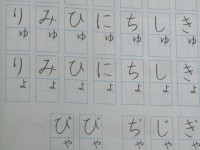 きゅきょぎゃ
しゅしょじゃ
ちゅちょぢゃ
にゅにょ
ひゅひょびゃ
みゅみょぴゃ
りゅりょ